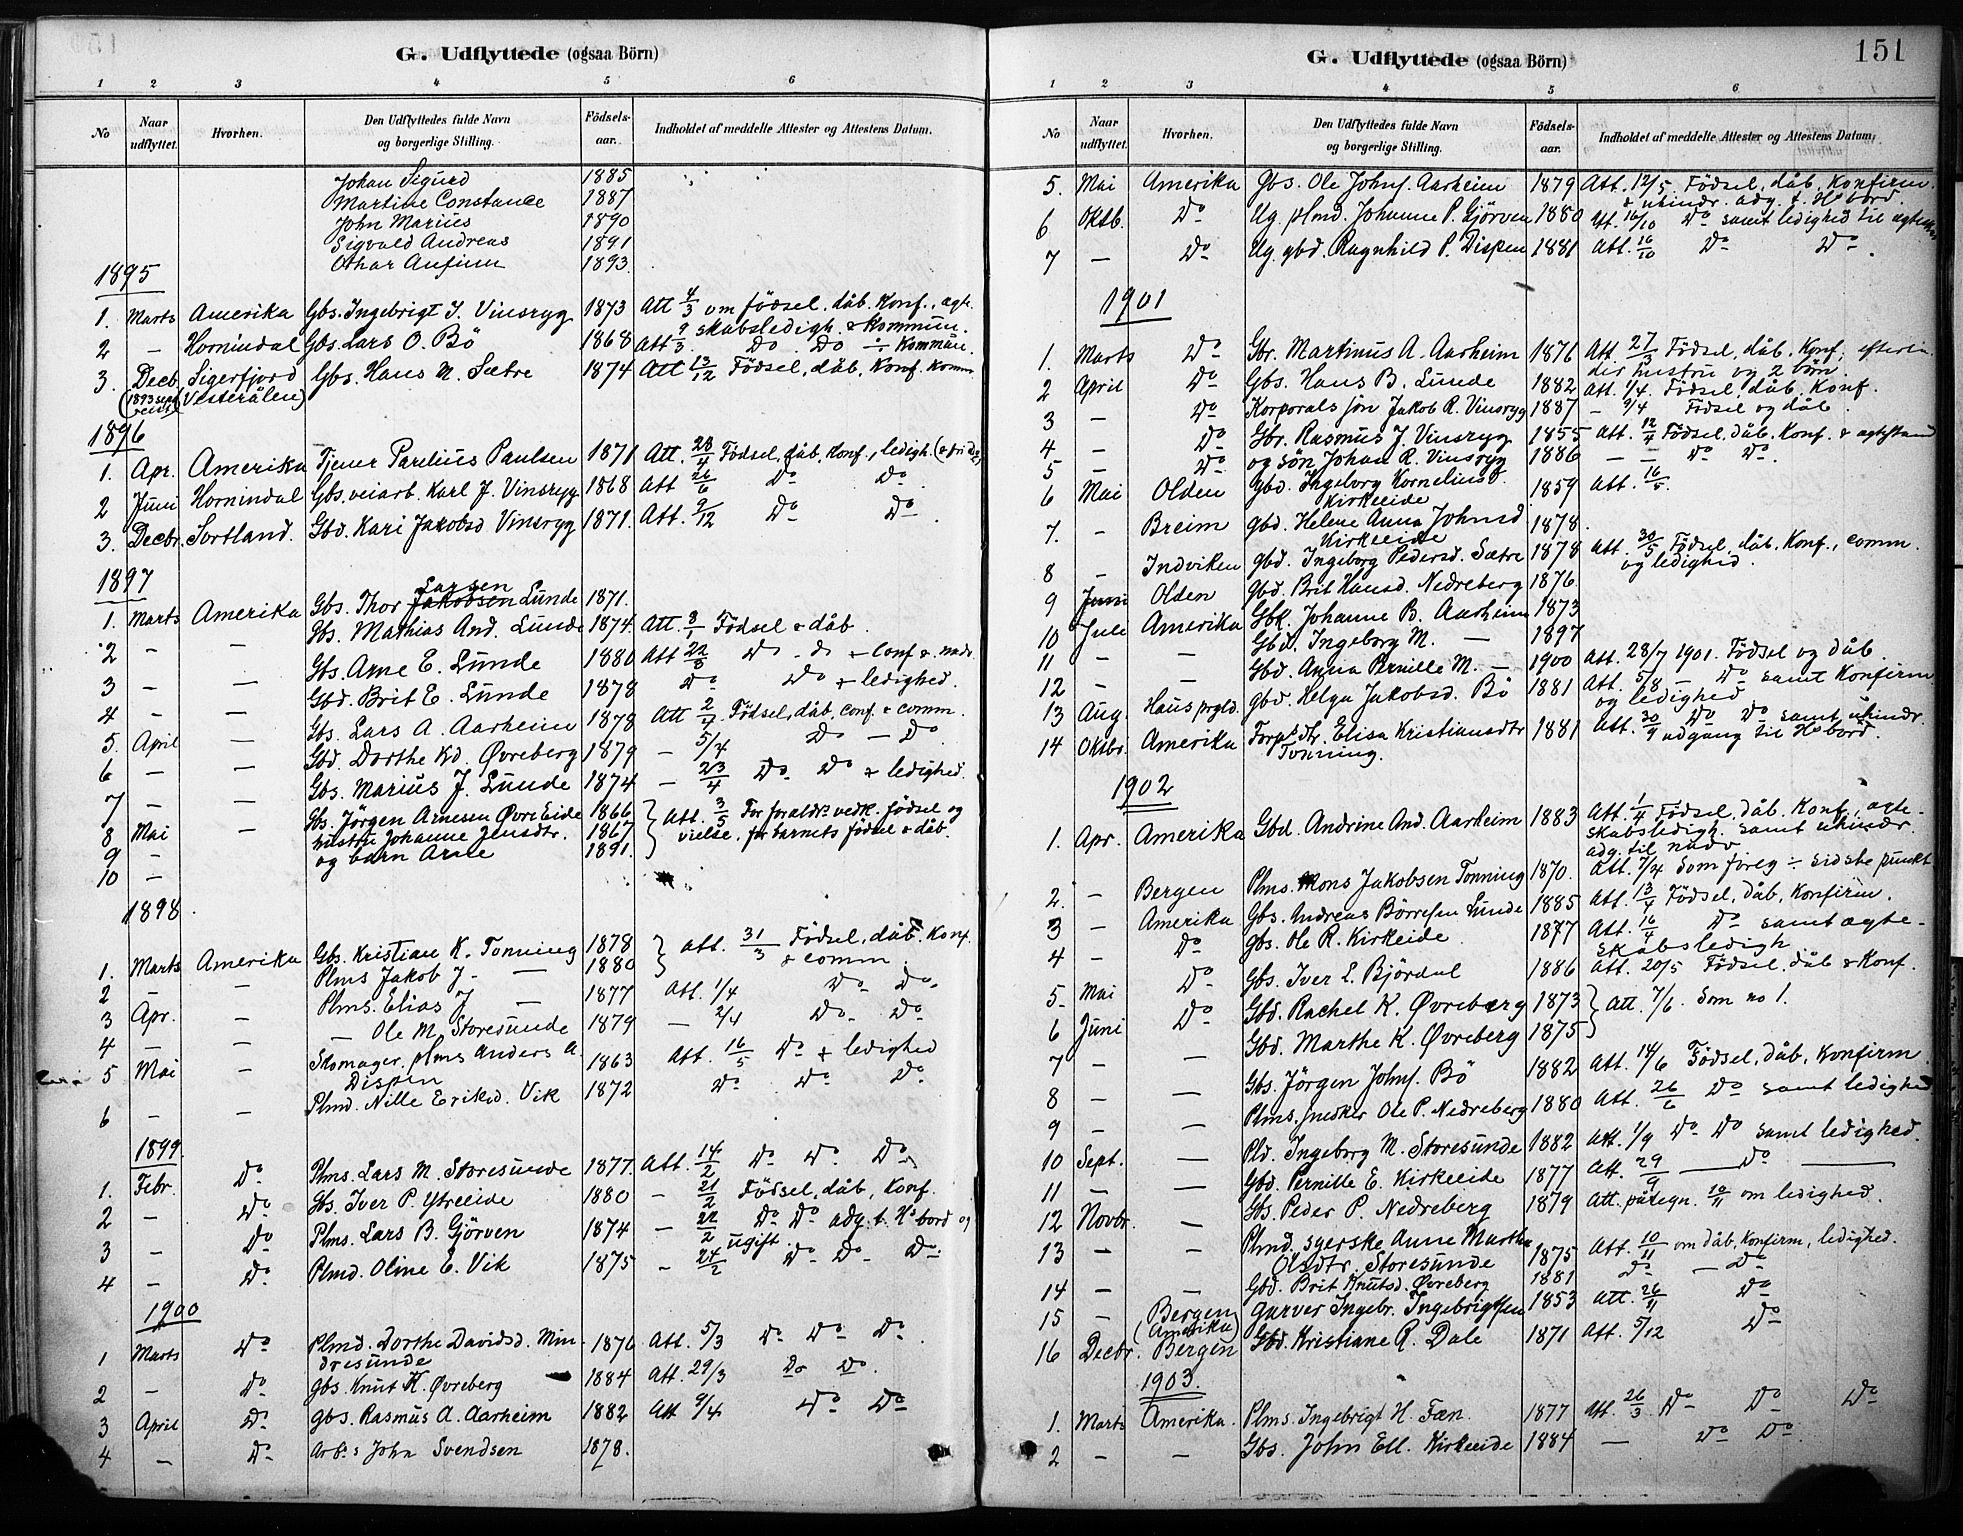 G. Udflyttede (ogsaa Börn)
1 2 3 4 5 6
No Naar udflyttet. Hvorhen. Den Udflyttedes fulde Navn og borgerlige Stilling. Födsels-aar. Indholdet af meddelte Attester og Attestens Datum.
Johan Sigurd 1885
Martine Constance 1887
John Marius 1890
Sigvald Andreas 1891
Othar Anfinn 1893.
1895
1. Marts Amerika Gbs. Ingebrigt J. Vinsryg 1873 Att 4/3 om födsel, dåb, Konf., ægte-
skabsledigh. & Kommun.
2 – Hornindal Gbs. Lars O. Bö 1868 Att 9/3. Do Do ÷ Kommun.
3. Decb. Sigerfjord Gbs. Hans M. Sætre 1874 Att 13/12 Födsel, dåb, Konf. Komm.
(1893 sept. reist) Vesterålen)
1896
1. Apr. Amerika Tjener Parelius Paulsen 1871 Att. 28/4 Födsel, dåb, Konf., ledigh.
2 Juni Hornindal Gbs. veiarb. Karl J. Vinsryg 1868 Att 26/6 Do Do
3. Decbr. Sortland. Gbd. Kari Jakobsd Vinsryg 1871. Att. 9/12 Do Do
1897
Larsen
1. Marts Amerika Gbs. Thor Jakobsen Lunde 1871.
2 – – Gbs. Mathias And. Lunde 1874. Att. 8/1 Födsel & dåb.
3 – – Gbs. Arne E. Lunde 1880 Att 22/3 Do . Do & Conf & nadv.
4 – – Gbd. Brit E. Lunde 1878 Do Do & ledighed.
5. April – Gbs. Lars A. Aarheim 1878 Att 2/4. Födsel, dåb, conf. & comm.
6 – – Gbd. Dorthe Kd. Øvreberg 1879 – 5/4 Do – Do
7 – – Gbs. Marius J. Lunde 1874 – 23/4 Do Do & ledighed.
8 Mai – Gbs. Jörgen Arnesen Øvre Eide 1866 Att. 3/5 For foraldr. vedk. födsel og
9 – hustru Johanne Jensdtr. 1867 vielse, for barnets födsel & dåb.
10 – og barn Arne 1891.
1898.
1. Marts Amerika Gbs. Kristian K. Tonning 1878 Att. 31/3 Födsel, dåb, Konf.
2 – – Plms Jakob J. – 1880 & comm.
3 Apr. – Plms. Elias J – 1877 Att. 1/4 Do Do.
4 – – – Ole M. Storesunde 1879 – 2/4 Do Do
5 Mai – Skomager, plms Anders A. 1863 Att. 16/5 Do & ledighed
Dispen
6 – – Plmd. Nille Eriksd. Vik 1872 Do Do Do
1899.
1. Febr. Do Plms. Lars M. Storesunde 1877. Att. 14/2 Do Do Do
2 – Do Gbs. Iver P. Ytreeide 1880 – 21/2 Födsel, dåb, Konf.
3 – Do Plms. Lars B. Gjörven 1874 – 22/2 Do Do adg. t. Hs bord og
ugift.
4 – Do Plmd. Oline E. Vik 1875 – 24/2 Do Do Do
1900
1 Marts Do Plmd. Dorthe Davidsd. Min- 1876 Att. 5/3 Do Do Do
dresunde
2 – Do Gbs. Knut K. Øvreberg 1884 Att. 29/3 Do Do.
3 April Do Gbs. Rasmus A. Aarheim 1882 Att 9/4 Do Do
4 – Do Arb: John Svendsen 1878.
G. Udflyttede (ogsaa Börn) 151
1 2 3 4 5 6
No Naar udflyttet. Hvorhen. Den Udflyttedes fulde Navn og borgerlige Stilling. Födsels-aar. Indholdet af meddelte Attester og Attestens Datum.
5. Mai Amerika Gbs. Ole Johns. Aarheim 1879 Att. 12/5 Födsel, dåb, Konfirm.
& uhindr. adg. t. Hs bord.
6 Oktb. Do Ug. plmd. Johanne P. Gjörven 1880 Att. 16/10 Do samt ledighed til ægtesk.
7 – Do Ug. gbd. Ragnhild P. Dispen 1881 Att. 16/10 Do Do.
1901
1. Marts Do Gbr. Martinus A. Aarheim 1876 Att. 27/3 Födsel, dåb, Konf., efterla-
der hustru og 2 börn.
2 April Do Gbs. Hans B. Lunde 1882 Att. 1/4. Födsel, dåb, Konf.
3 – Do Korporals sön Jakob R. Vinsryg 1887 – 9/4 Födsel og dåb.
4 – Do Gbr. Rasmus J. Vinsryg 1855 Att. 12/4 Födsel, dåb, Konf. & ægtestand
5 – Do og sön Johan R. Vinsryg 1886 – – Do Do.
6 Mai Olden Gbd. Ingeborg Kornelius d. 1859 Att. 16/5.
Kirkeeide
7. – Breim Gbd. Helene Anna Johnsd 1878.
Kirkeeide
8 – Indviken Gbd. Ingeborg Pedersd. Sætre 1878 Att. 30/5 Födsel, dåb, Konf., comm.
og ledighed.
9 Juni Olden Gbd. Brit Hansd. Nedreberg 1876.
10 Juli Amerika Gbk. Johanne B. Aarheim 1873
11 – – Gbd. Ingeborg M. – 1897
12 – – Gbd. Anna Pernille M. – 1900 Att. 28/7 1901. Födsel og dåb.
13 Aug. Haus prgld. Gbd. Helga Jakobsd. Bö 1881 Att. 5/8 – Do samt Konfirm.
og ledighed
14 Oktbr. Amerika Forp. dtr. Elisa Kristiansdtr 1881 Att. 30/9 Do Do samt uhindr.
Tonning. adgang til Hs bord.
1902
1. Apr. Amerika Gbd. Andrine And. Aarheim 1883 Att. 1/4 Födsel, dåb, Konf., ægte-
skabsledigh. samt uhindr.
adg. til nadv
2. – Bergen Plms. Mons Jakobsen Tonning 1870. Att. 7/4 Som foreg ÷ sidste punkt
3 – Amerika Gbs. Andreas Börresen Lunde 1885 Att. 13/4 Födsel, dåb, Konfirm.
4 – Do Gbs. Ole R. Kirkeide. 1877 Att. 16/4 Do samt ægte-
skabsledigh
5. Mai Do Gbs. Iver L. Björdal 1886 Att. 20/5 Födsel, dåb & Konf.
6 Juni Do Gbd. Rachel K. Øvreberg 1873 Att. 7/6. Som no 1.
7 – – Gbd. Marthe K. Øvreberg 1875
8 – – Gbs. Jörgen Johns. Bö 1882 Att. 14/6 Födsel, dåb, Konfirm
9 – – Plms. snedker Ole P. Nedreberg 1880 Att. 26/6 Do samt ledighed
10 Sept. – Pld. Ingeborg M. Storesunde 1882 Att. 1/9 Do Do samt ledighed.
11 – – Gbd. Pernille E. Kirkeeide 1877 Att. 29/9 — Do —
12 Novbr. – Gbs. Peder P. Nedreberg 1879 Att. påtegn. 10/11 om ledighed.
13 – – Plmd. syerske Anne Marthe 1875 Att. 10/11 om dåb, Konfirm, ledighed.
Olsdtr. Storesunde
14 – – Gbd. Brit Knutsd. Øvreberg 1881 Do – Do
15 – Bergen Garver Ingebr. Ingebrigtsen 1853 Att. 26/11 Do
(Amerika)
16 Decbr. Bergen Gbd. Kristiane R. Dale 1871 Att. 5/12 Do
1903.
1. Marts Amerika. Plms. Ingebrigt H. Fæn. 1877 Att. 26/3 Do Do Do
2 – – Gbs. John Ell. Kirkeeide 1884 — Do Do.